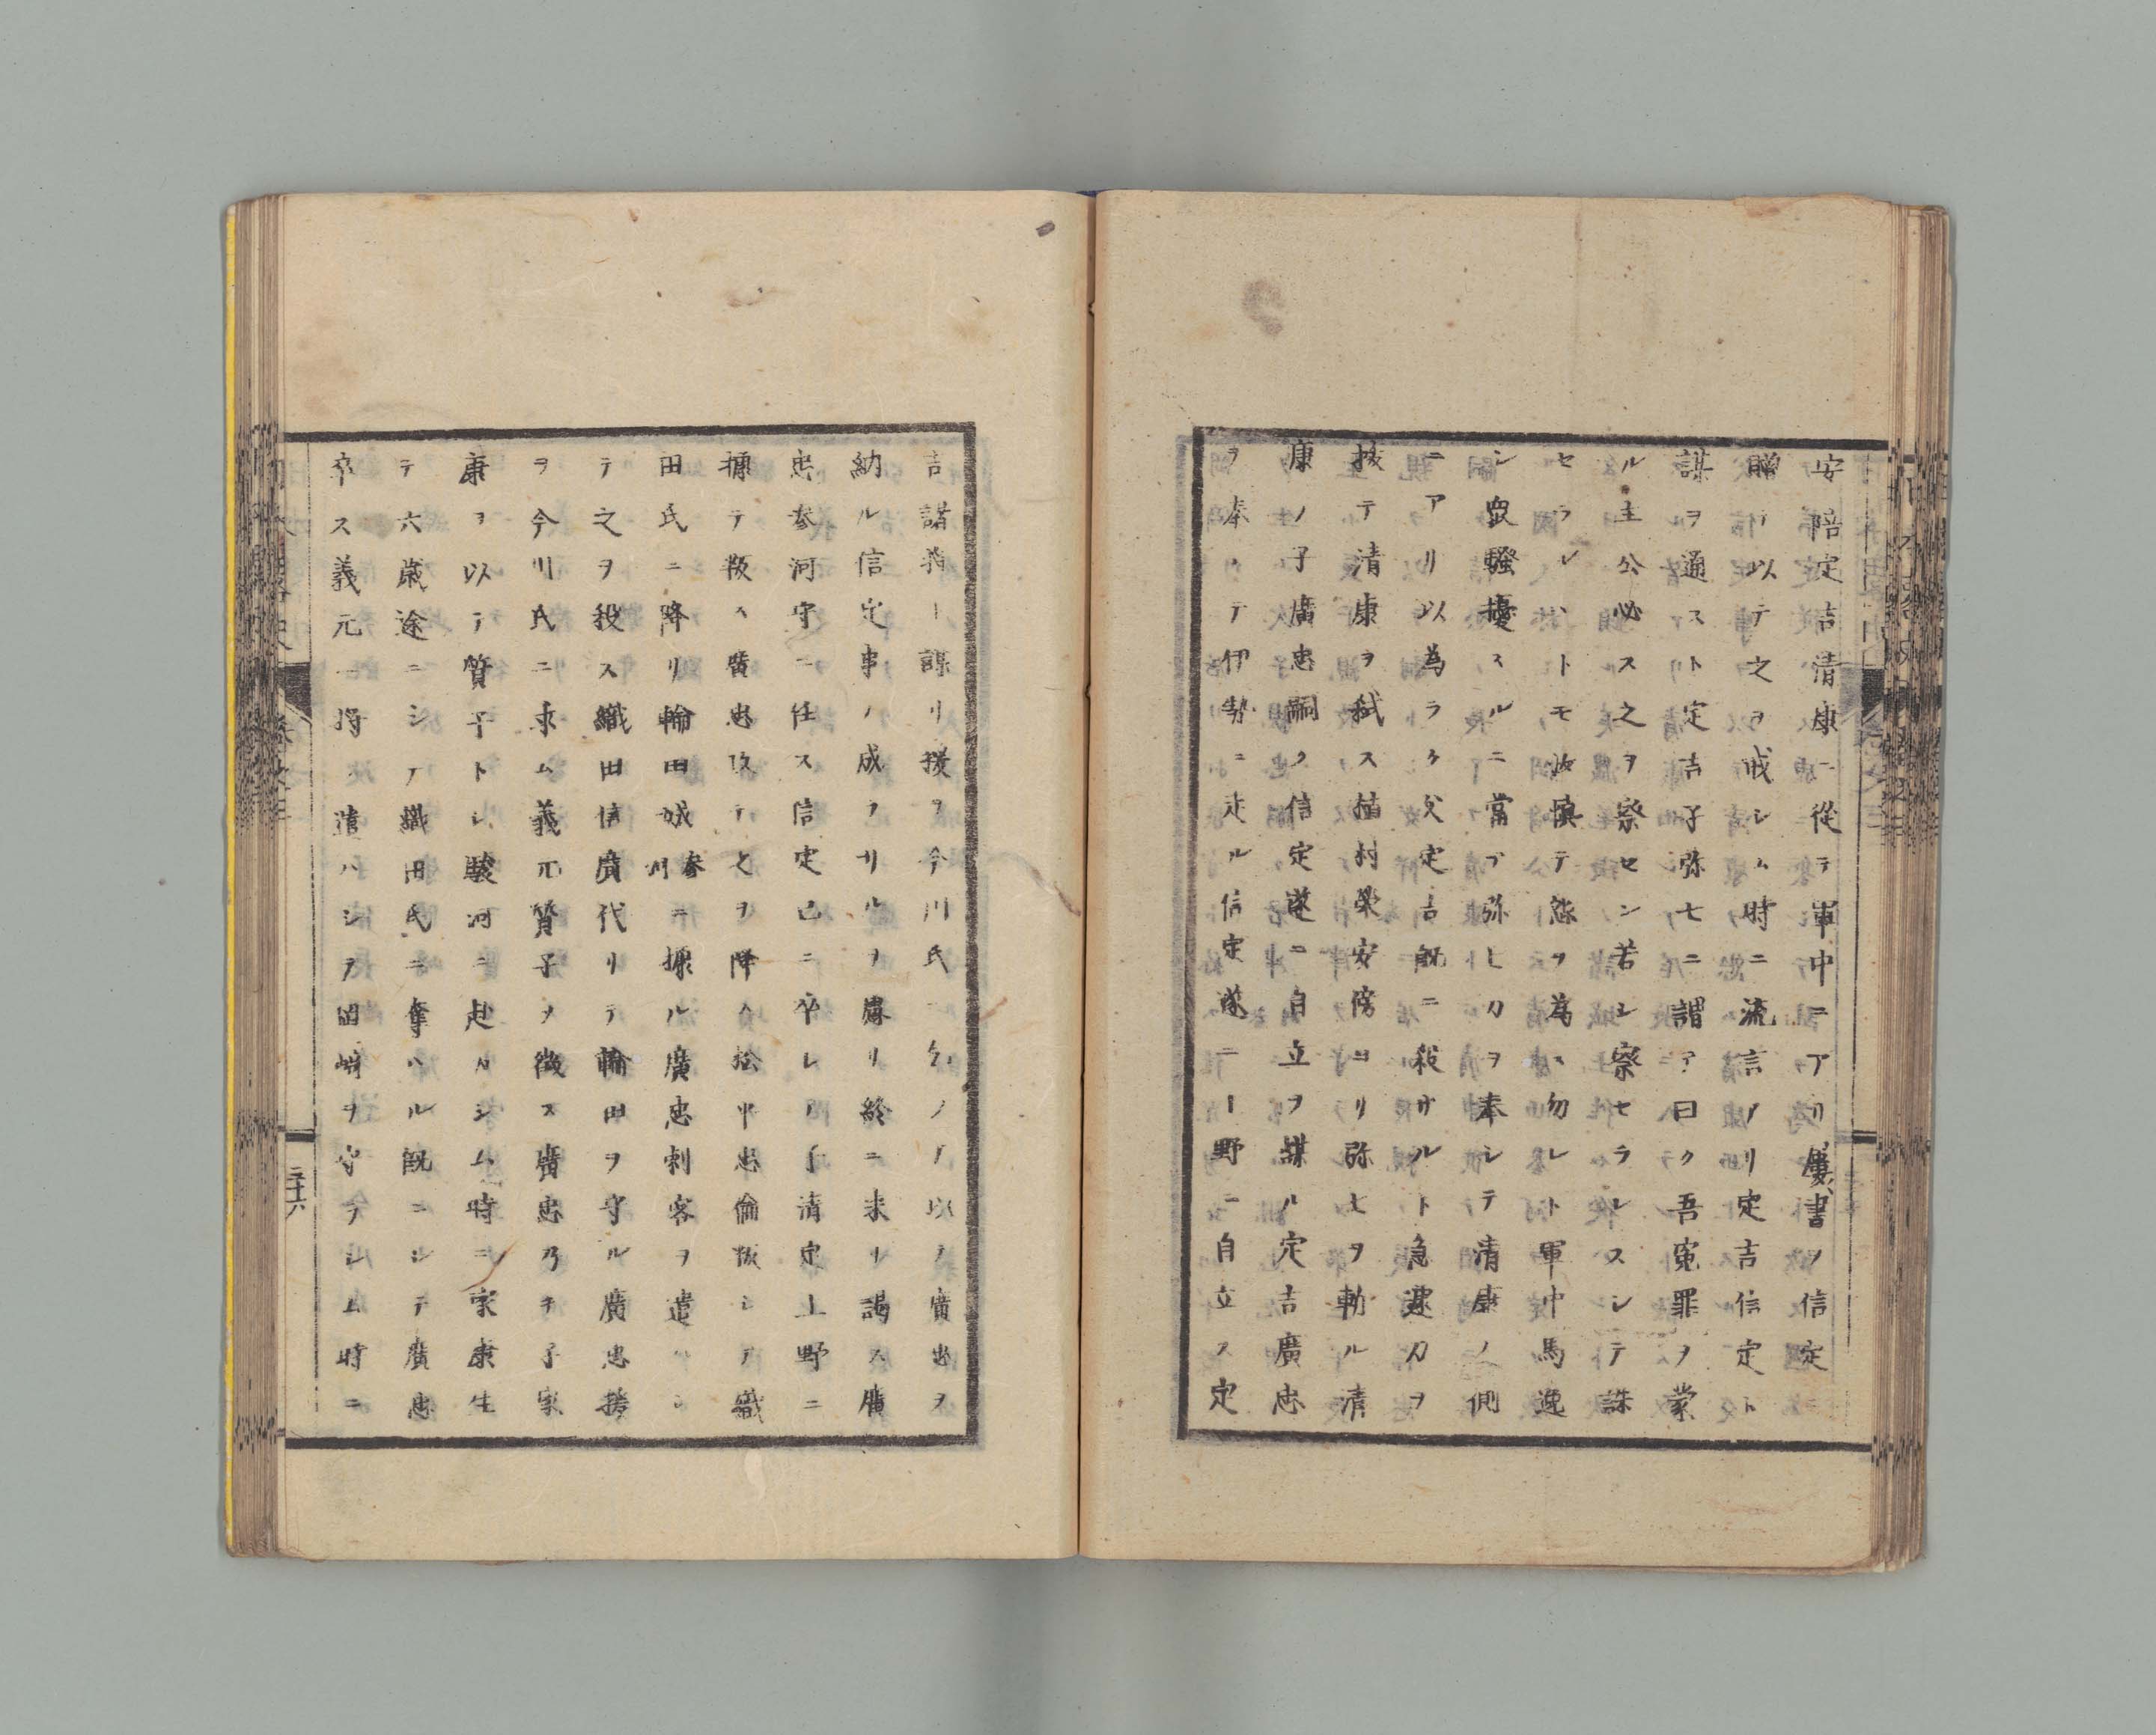 安陪定吉清康ニ從テ軍中ニアリ屢〻書ヲ信定
ニ贈テ以テ之ヲ戒シム時ニ流言アリ定吉信定ト
謀ヲ通スト定吉子弥七ニ謂テ曰ク吾寃罪ヲ蒙
ル主公必ス之ヲ察セン若シ察セラレスシテ誅
セラレハトモ汝慎テ怨ヲ為ス勿レト軍中馬逸
シ衆騒擾スルニ當テ弥七刀ヲ奉シテ清康ノ側
ニアリ以為ラク父定吉既ニ殺サルト急遽刀ヲ
拔テ清康ヲ弑ス植村榮安傍ヨリ弥七ヲ斬ル清
康ノ子廣忠嗣ク信定遂ニ自立ヲ謀ル定吉廣忠
ヲ奉シテ伊勢ニ走ル信定遂ニ上野ニ自立ス定
吉諸将ト謀リ援ヲ今川氏ニ乞ノテ以テ廣忠ヲ
納ル信定事ノ成ラサルヲ慮リ終ニ来リ謁ス廣
忠参河守ニ任ス信定已ニ卒シノ子清定上野ニ
據テ叛ス廣忠攻テ之ヲ降ス松平忠倫叛シテ織
田氏ニ降リ輪田城参州ニ據ル廣忠刺客ヲ遣ハシ
テ之ヲ殺ス織田信廣代リテ輪田ヲ守ル廣忠援
ヲ今川氏ニ求ム義元質子ヲ徴ス廣忠乃チ子家
康ヲ以テ質子トシ駿河ニ赴カシム時ニ家康生
テ六歳途ニシテ織田氏ニ奪ハル既ニシテ廣忠
卒ス義元一将ヲ遣ハシテ岡崎ヲ守ラシム時ニ
二十六